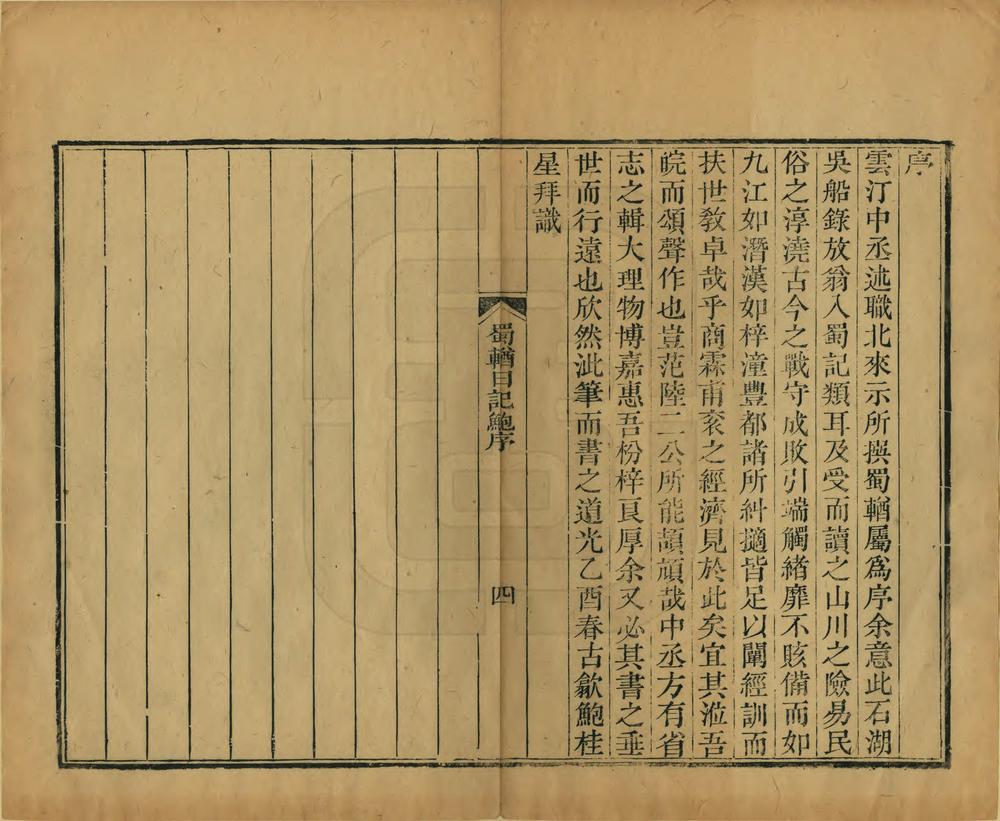 序
雲汀中丞述職北來示所撰蜀輶屬爲序余意此石湖
吳船錄放翁入蜀記類耳及受而讀之山川之險易民
俗之淳澆古今之戰守成敗引端觸緒靡不賅備而如
九江如潛漢如梓潼豐都諸所糾擿皆足以闡經訓而
扶世敎卓哉乎商霖甫衮之經濟見於此矣宜其涖吾
皖而頌聲作也豈范陸二公所能頡頏哉中丞方有省
志之輯大理物博嘉惠吾枌梓良厚余又必其書之垂
世而行遠也欣然泚筆而書之道光乙酉春古歙鮑桂
星拜識
蜀輶日記鮑序
四